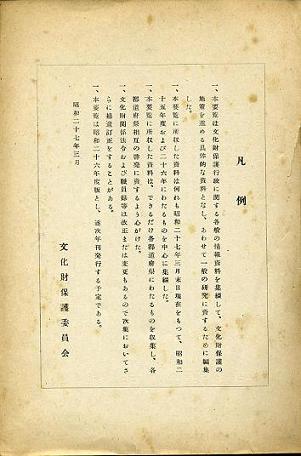 凡例
一、本要覧は文化財保護行政に関する各般の情報資料を集録して、文化財保護の
施策を進める具体的な資料となし、あわせて一般の研究に資するために編集
した。
一、本要覧に所収した資料は何れも昭和二十七年三月末日現在をもつて、昭和二
十五年度および二十六年にわたるものを中心に集録した。
一、本要覧に所収した資料は、できるだけ各都道府県にわたるものを収集し、各
都道府県相互の啓発に資するよう心がけた。
一、文化財関係法令および職員録等は改正または変更もあるので次集においてさ
らに補遺訂正をすることがある。
一、本要覧は昭和二十六年度版とし、逐次年刊発行する予定である。
昭和二十七年三月
文化財保護委員会